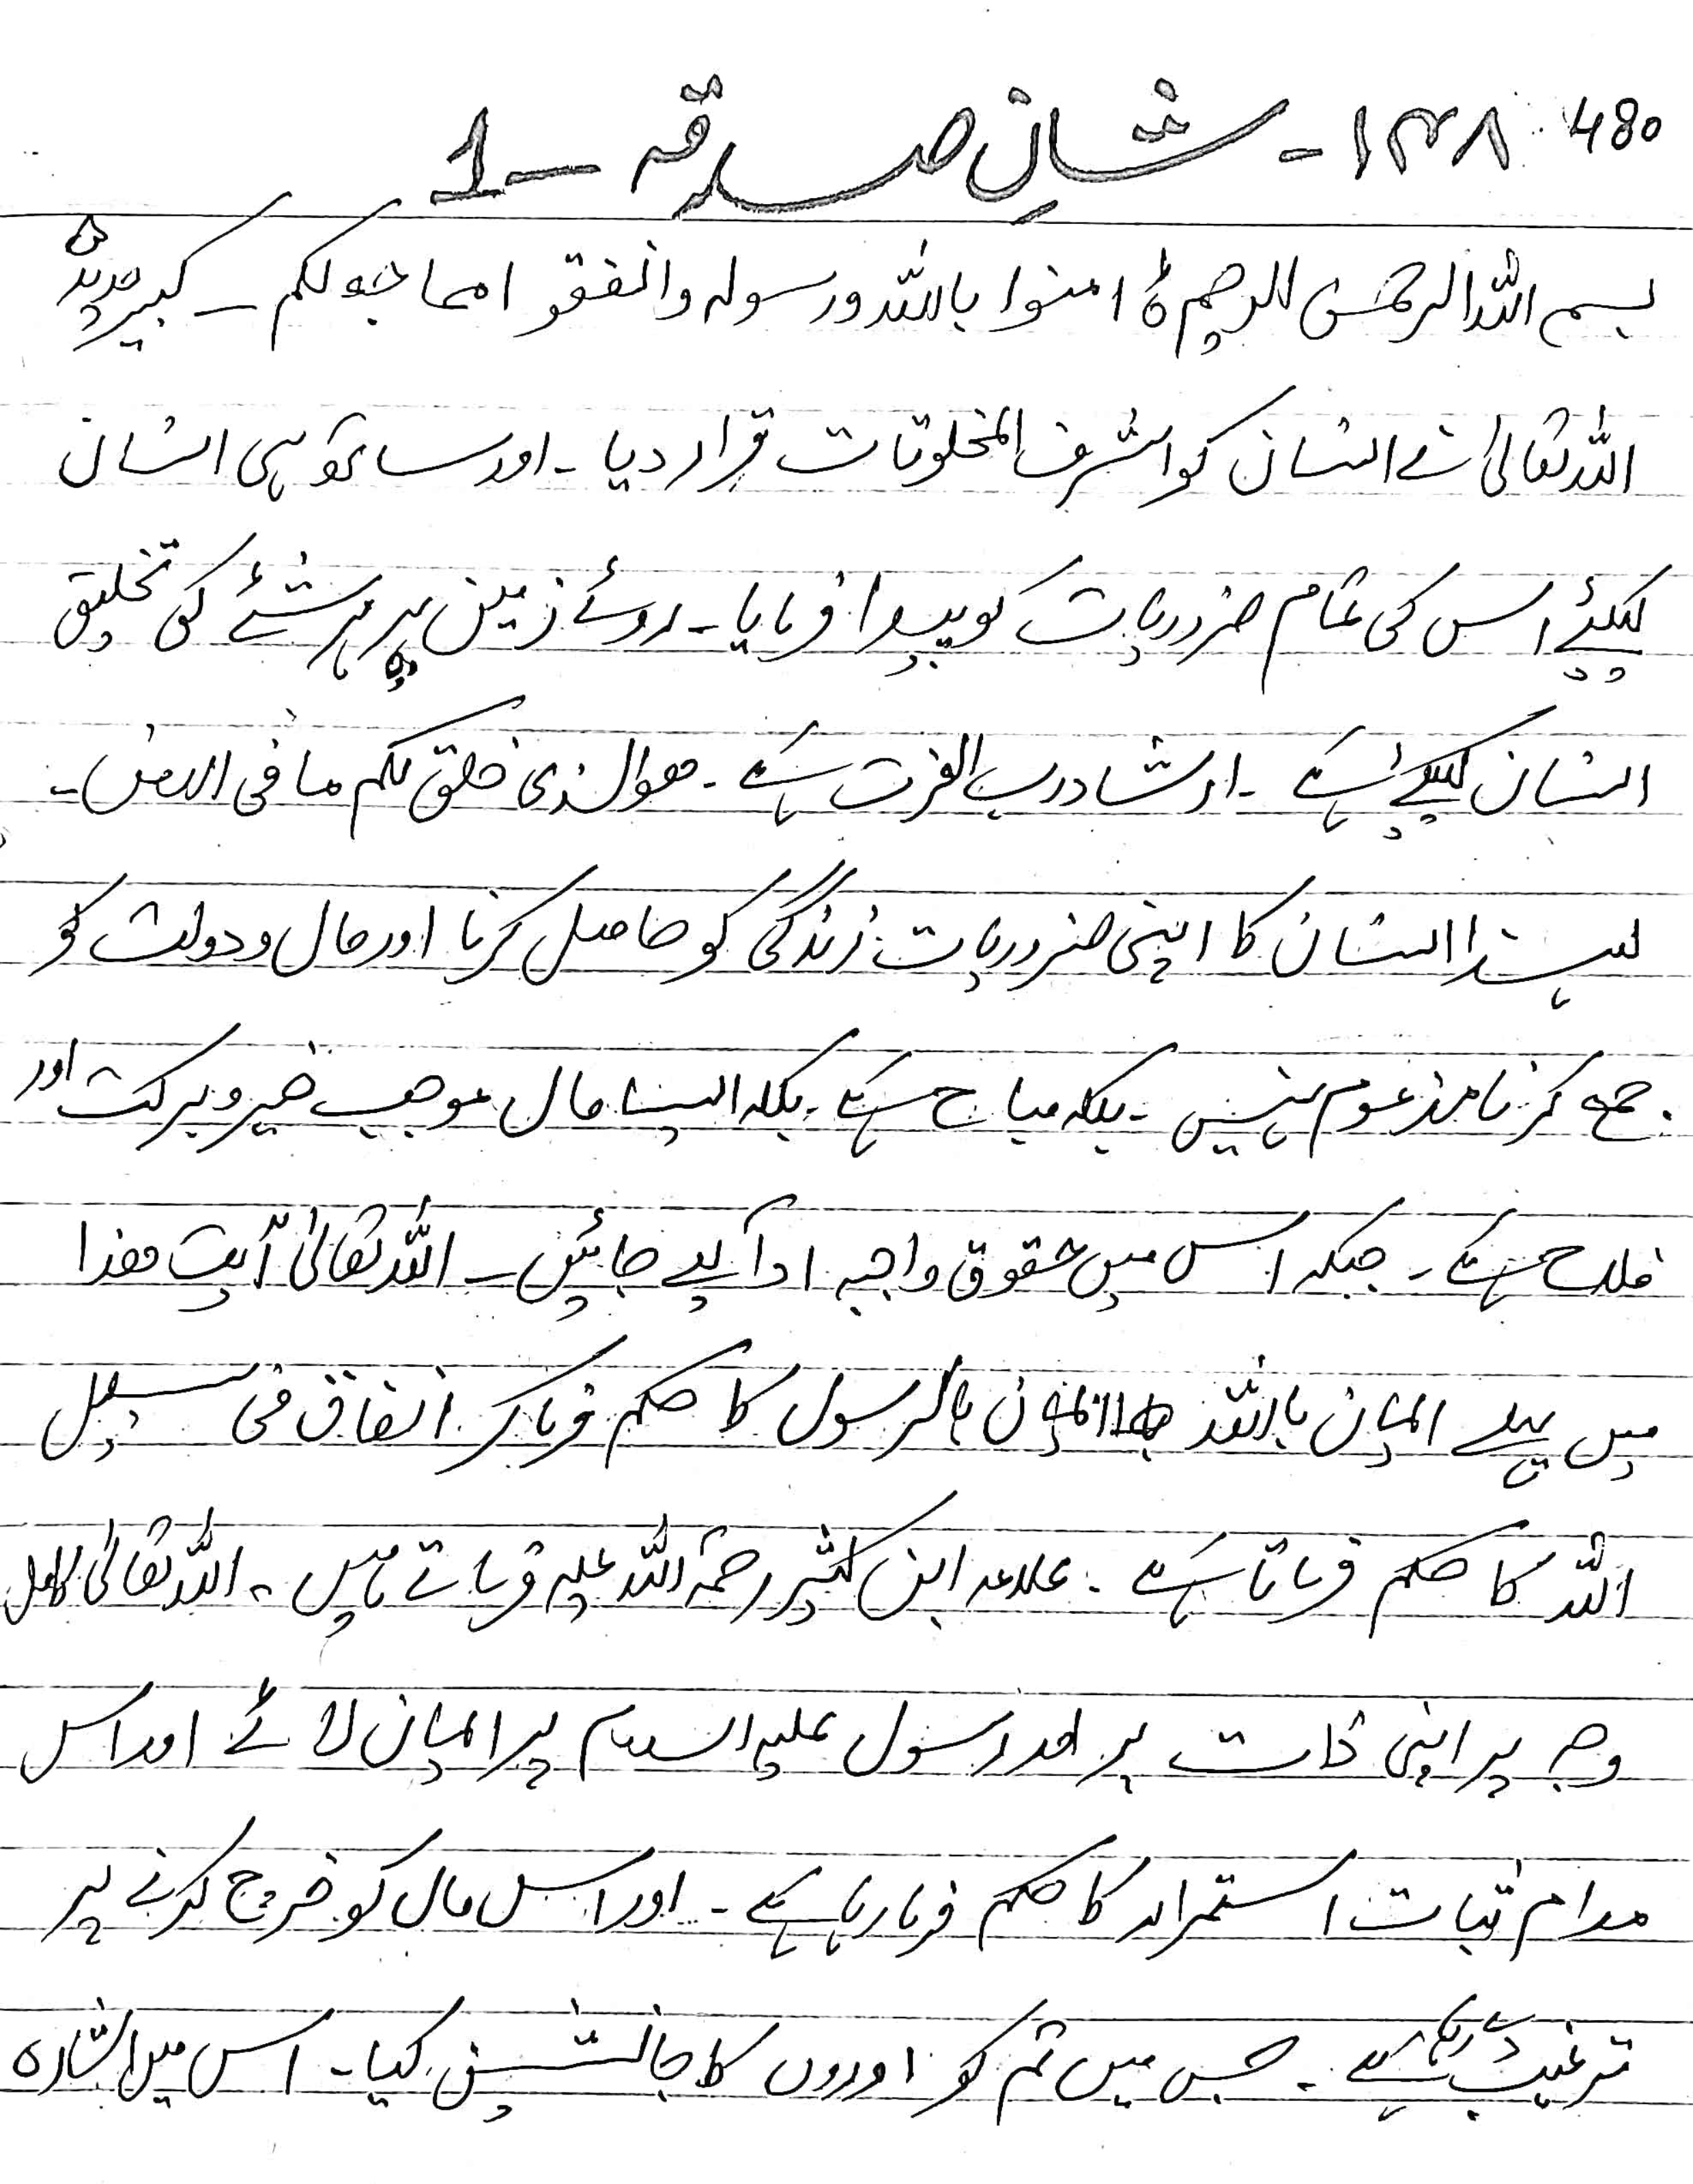 480 ۱۳۸ - شانِ صدقہ - 1
بسم اللہ الرحمٰن الرحیم ہ امنوا باللہ ورسولہ وانفقو امما جعلکم - کبیر
اللہ تعالیٰ نے انسان کو اشرف المخلوقات قرار دیا - اور ساتھ ہی انسان
کیلئے اس کی تمام ضروریات کو پیدا فرمایا - روئے زمین پر ہر شئے کی تخلیق
انسان کیلئے ہے - ارشاد رب العزت ہے - ھوالذی خلق لکم ما فی الارض -
لہذا انسان کا اپنی ضروریات زندگی کو حاصل کرنا اور مال و دولت کو
جمع کرنا مذموم نہیں - بلکہ مباح ہے - بلکہ ایسا مال موجب خیر و برکت اور
فلاح ہے - جبکہ اس میں حقوق واجبہ ادا کیے جائیں - اللہ تعالیٰ آیت ھذا
میں پہلے ایمان باللہ ایمان بالرسول کا حکم فرما کر انفاق فی سبیل
اللہ کا حکم فرماتا ہے - علامہ ابن کثیر رحمۃ اللہ علیہ فرماتے ہیں - اللہ تعالیٰ کامل
وجہ پر اپنی ذات پر اور رسول علیہ السلام پر ایمان لانے اور اس
مدام ثبات استمرار کا حکم فرما رہا ہے - اور اس مال کو خروج کرنے پر
ترغیب دے رہا ہے - جس میں تم کو اوروں کا جانشین کیا - اس میں اشارہ